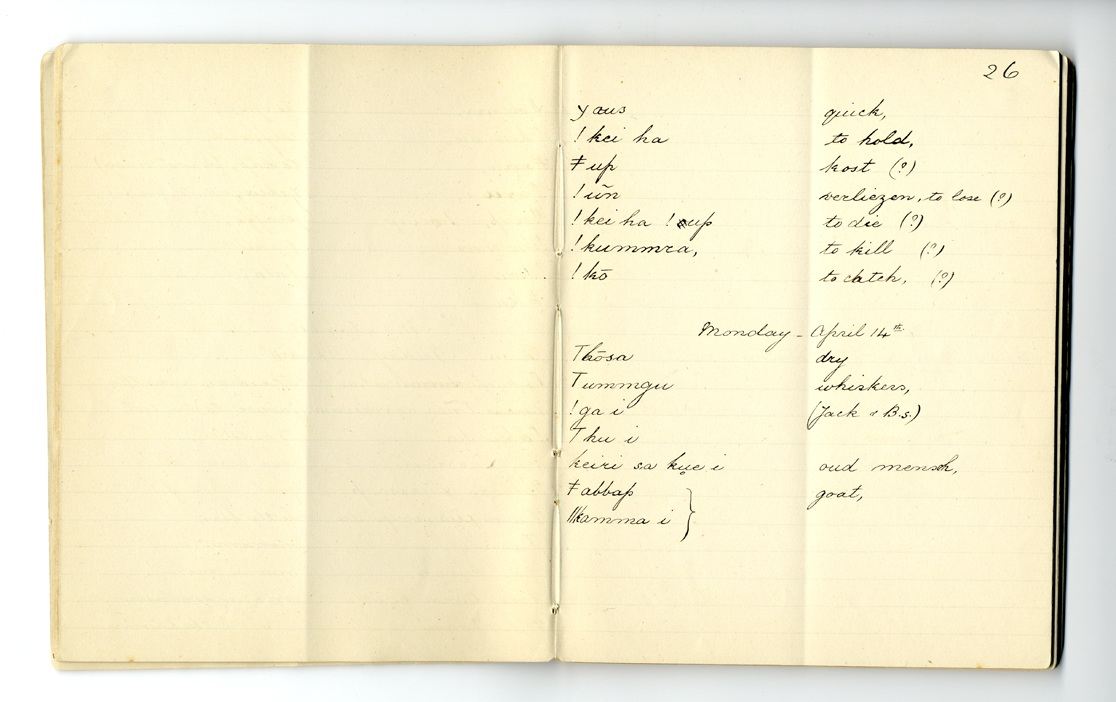 26
yaus quick,
! kei ha to hold,
ǂ up kost (?)
! ūn verliezen, to lose (?)
! kei ha ! up to die (?)
! kummra, to kill (?)
! kō to catch, (?)
Monday - April 14th
Thōsa dry
Tummgu whiskers,
! ga i (Jack & B.s.)
Thu i
keiri sa i oud mensch,
ǂ abbap goat,
kamma i }